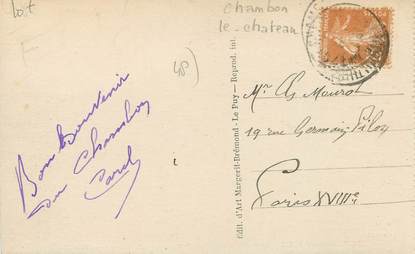 Lot
Chambon
le-chateau
48
Bon Souvenir
du Chambon
Carel
Edit. d'Art Margerit-Brémond - Le Puy — Reprod. int.
Mr Ch Maurot
19 rue Germain Pilon
Paris XVIIIe